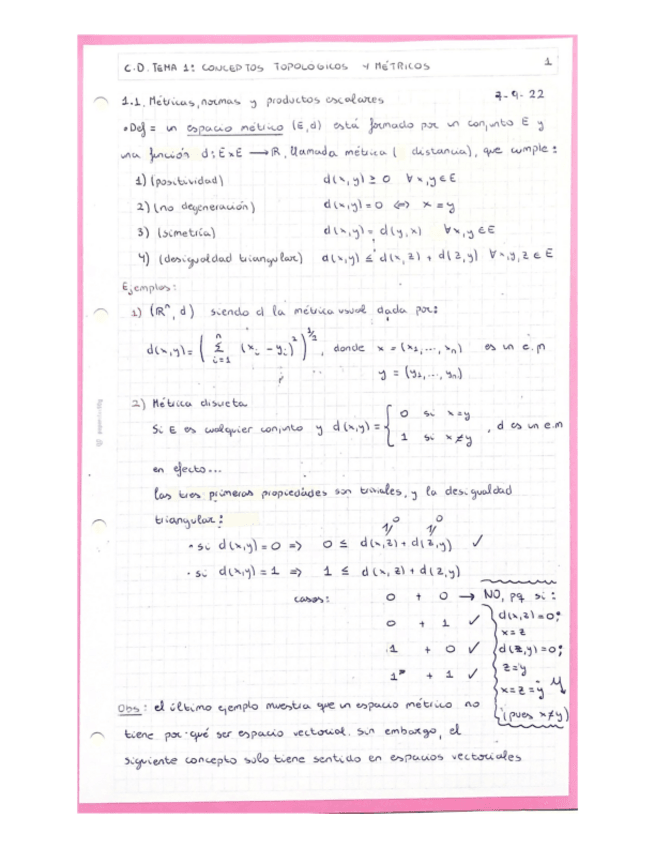 C.D. TEMA 1: CONCEPTOS TOPOLÓGICOS Y MÉTRICOS 1
1.1. Métricas, normas y productos escalares 7-9-22
•Def = un espacio métrico (E,d) está formado por un conjunto E y
una función d: E×E → R, llamada métrica ( distancia), que cumple:
1) (positividad) d(x,y) ≥ 0 ∀x,y ∈ E
2) (no degeneración) d(x,y) = 0 <=> x = y
3) (simetría) d(x,y) = d(y,x) ∀x,y ∈ E
4) (desigualdad triangular) d(x,y) ≤ d(x,z) + d(z,y) ∀x,y,z ∈ E
Ejemplos:
1) (Rⁿ, d) siendo d la métrica usual dada por:
d(x,y) = ( n Σ i=1 (xᵢ - yᵢ)² )^1/2, donde x = (x₁,..., xₙ) es un e.m
y = (y₁,..., yₙ)
2) Métrica discreta
Si E es cualquier conjunto y d(x,y) = { 0 si x=y
1 si x≠y , d es un e.m
en efecto...
las tres primeras propiedades son triviales, y la desigualdad
triangular:
0 0
• si d(x,y) = 0 => 0 ≤ d(x,z) + d(z,y) ✓
• si d(x,y) = 1 => 1 ≤ d(x,z) + d(z,y)
casos: 0 + 0 → NO, pq si:
0 + 1 ✓ d(x,z)=0;
x=z
1 + 0 ✓ d(z,y)=0;
z=y
1 + 1 ✓ x=z=y
(pues x≠y)
Obs: el último ejemplo muestra que un espacio métrico no
tiene por qué ser espacio vectorial. Sin embargo, el
siguiente concepto solo tiene sentido en espacios vectoriales